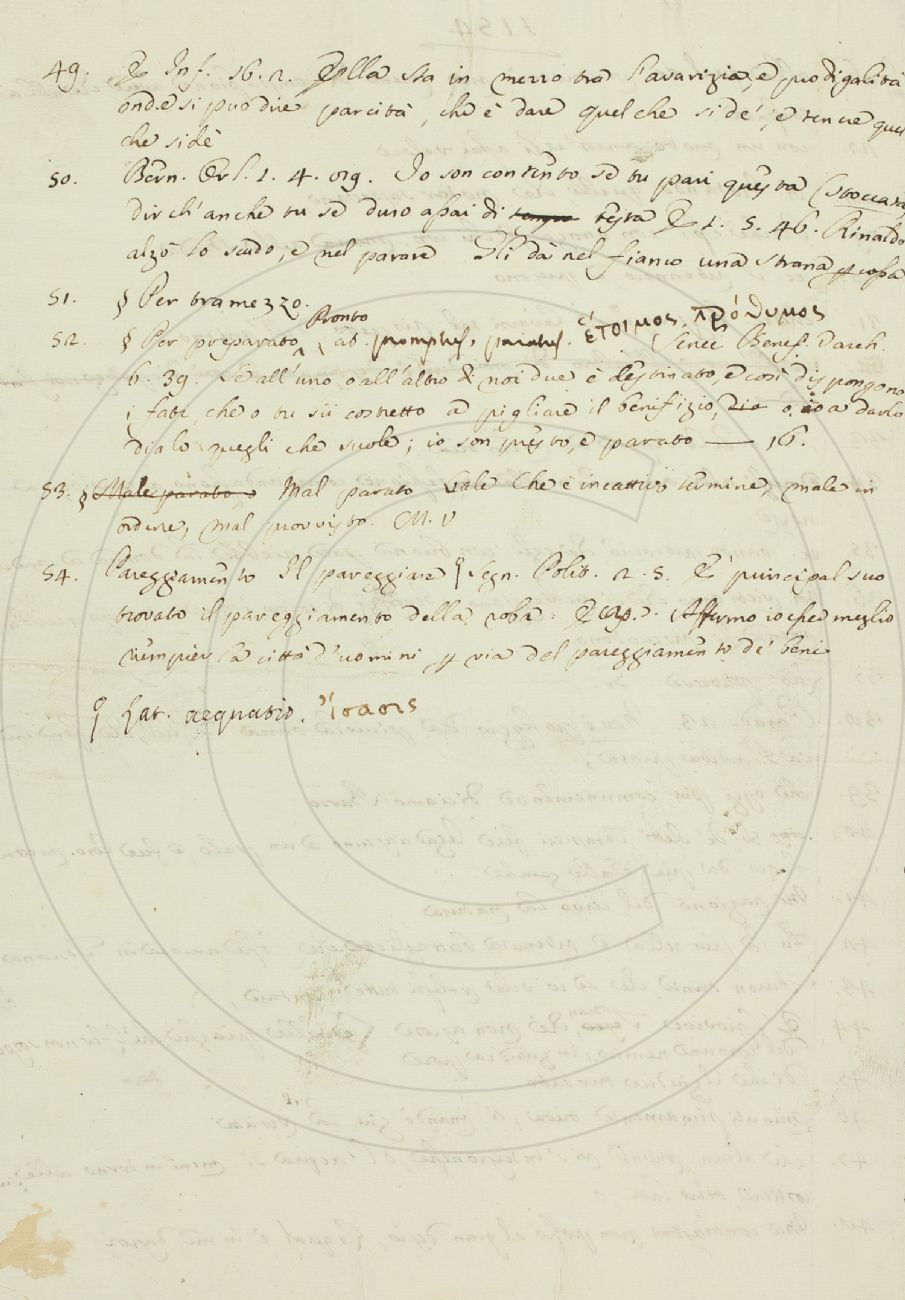 49. E Inf. 16. 2. Quella sta in mezzo tra l'avarizia, e prodigalità
onde si può dire parcità, che è dare quel che si de', e tenere quel
che si dè
50. Bern. Orl. 1. 4. Io son contento se tu pari questa (stoccata)
dirch' anche tu se duro assai di testa E 1. 5. 46. Rinaldo
alzò lo scudo, e nel parare Gli dà nel fianco una strana percossa
51. § Per tramezzo.
Pronto
52. § Per preparato § Lat. promptus, paratus. ἕτοιμος, πρόθυμος Senec Benef. Varch.
6. 39. Se all'uno, o all'altro di noi due è destinato, e così dispongono
i fati che o tu sii costretto a pigliare il benifizio, o io a darlo
dialo quegli che vuole; io son presto, e parato — 16.
53. § Male parato, Mal parato vale Che è in cattivo termine, male in
ordine, mal provvisto. M. V
54. Pareggiamento Il pareggiare § Segn. Polit. 2. 5. E' principal suo
trovato il pareggiamento della roba: E Affermo io che meglio
riempier la città d'uomini per via del pareggiamento de' beni
§ Lat. aequatio. ἴσασις